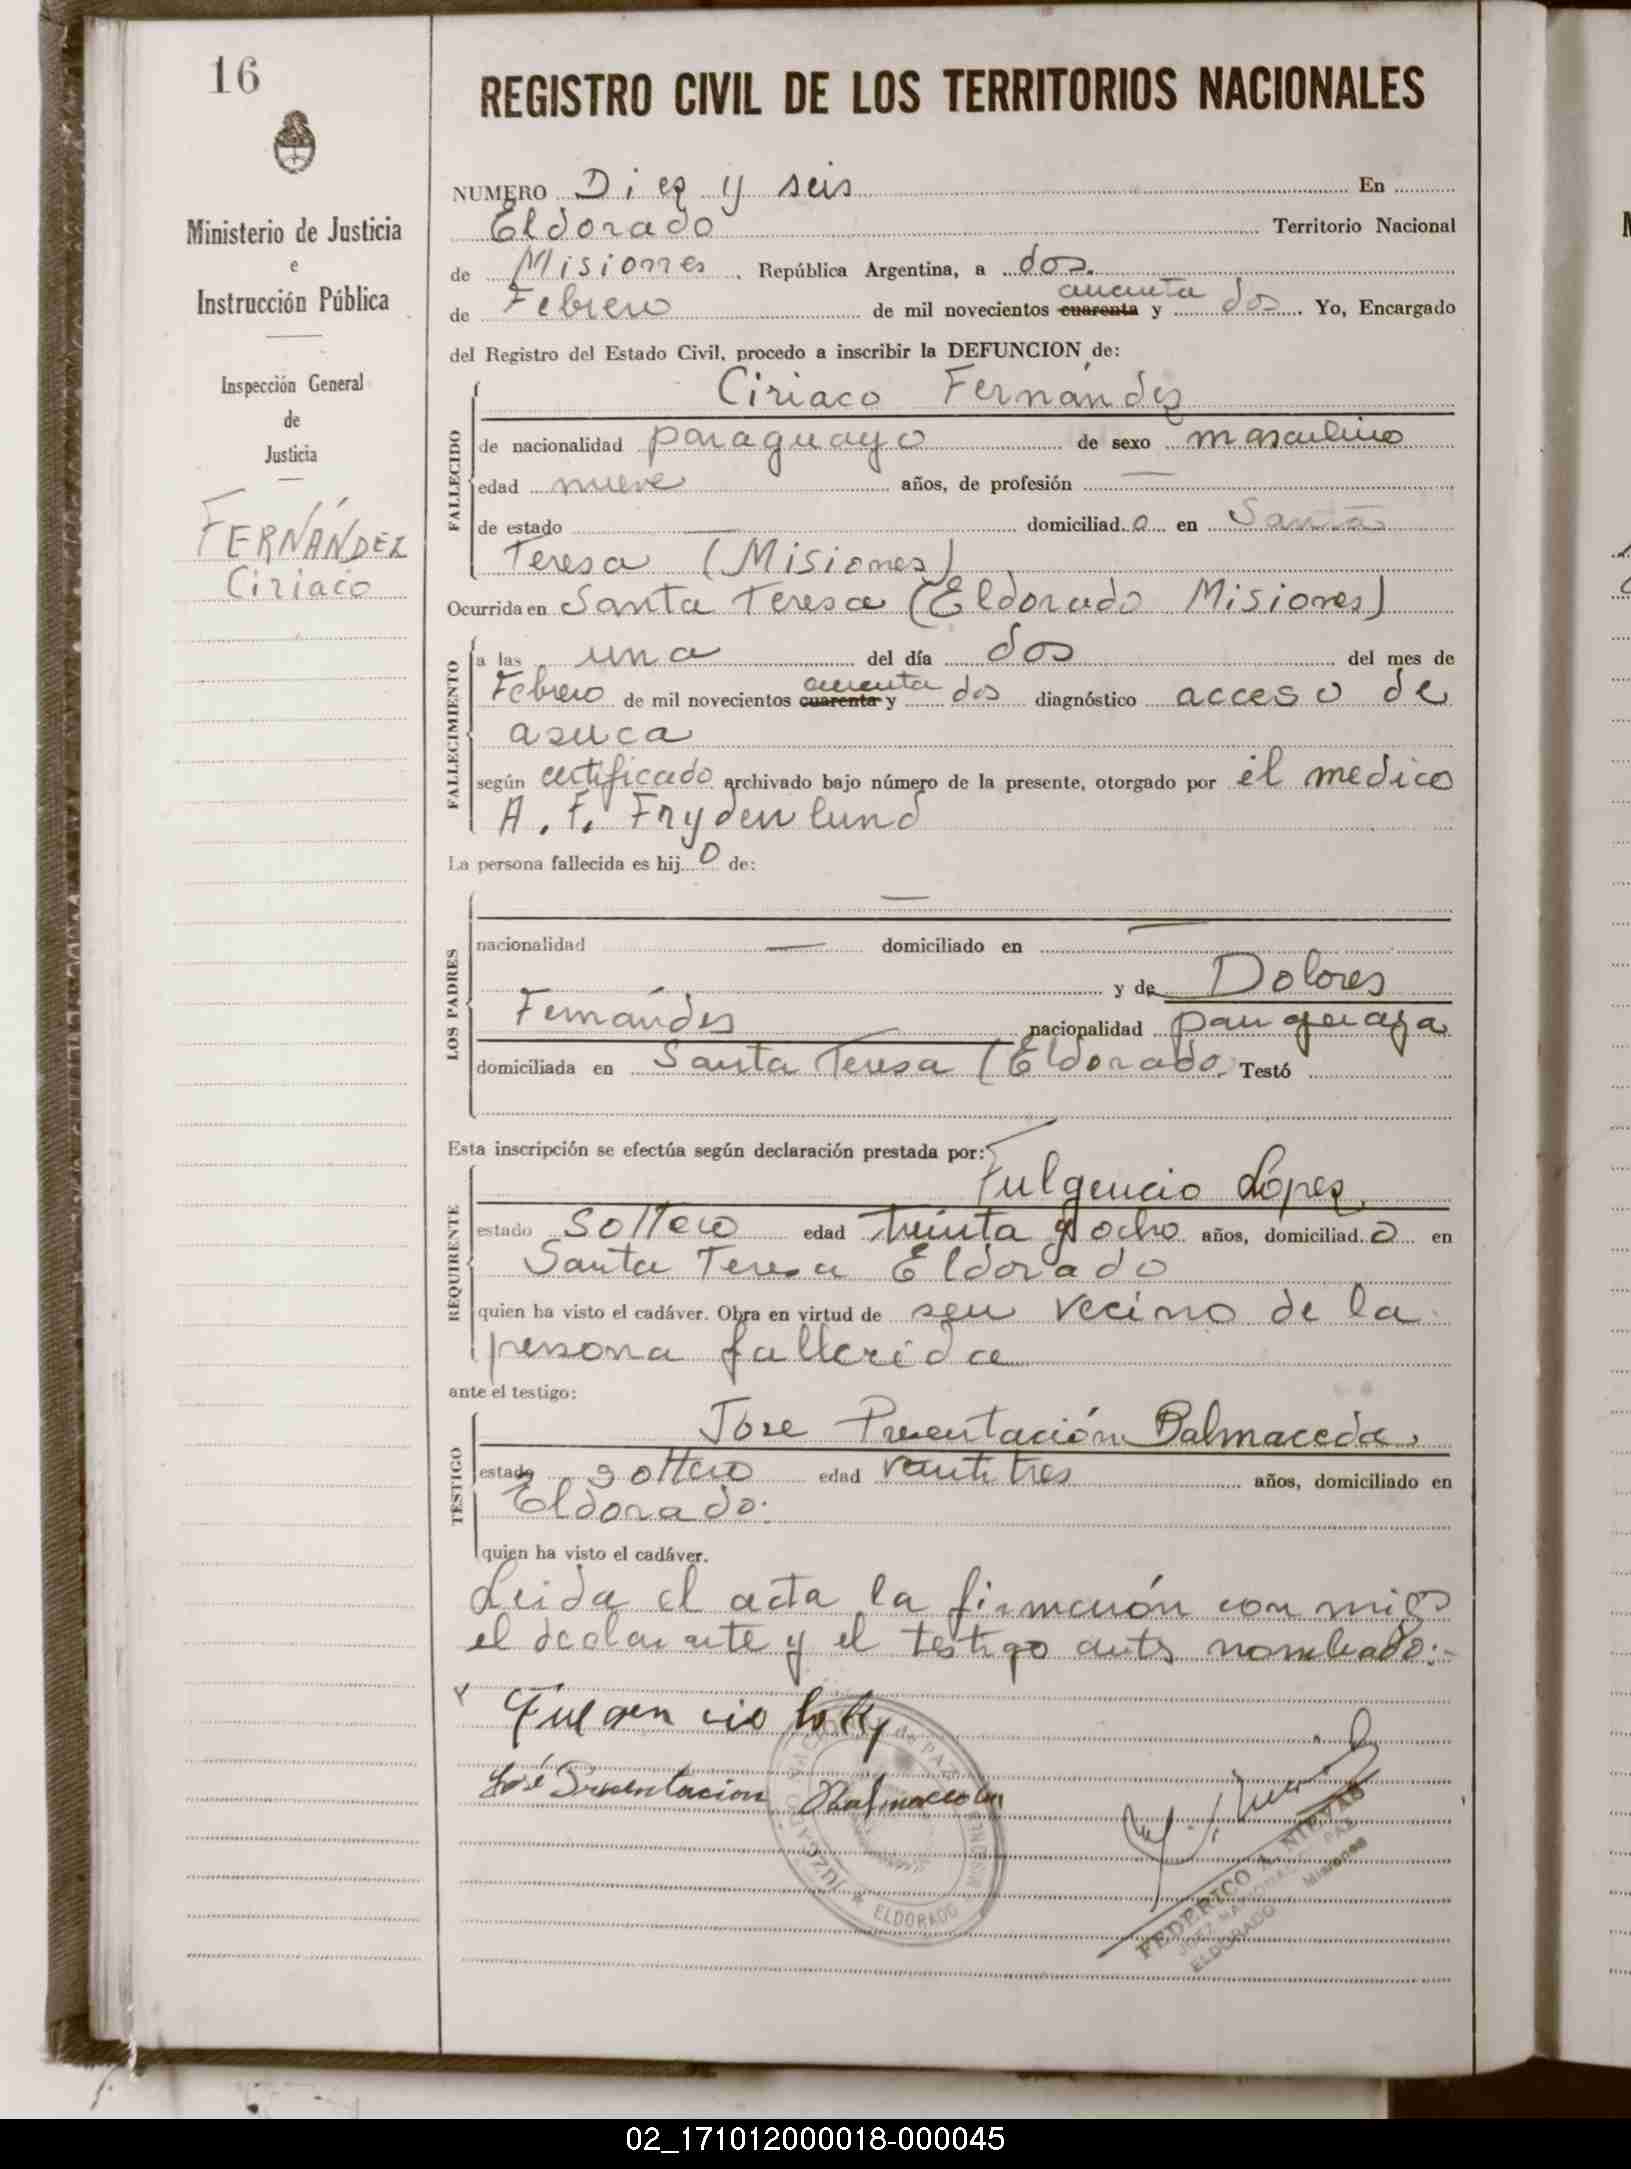 16
Ministerio de Justicia
e
Instrucción Pública
Inspección General
de
Justicia
FERNÁNDEZ
Ciriaco
REGISTRO CIVIL DE LOS TERRITORIOS NACIONALES
NUMERO Diez y seis En
Eldorado Territorio Nacional
de Misiones, República Argentina, a dos.
cuarenta
de Febrero de mil novecientos cuarenta y dos. Yo, Encargado
del Registro del Estado Civil, procedo a inscribir la DEFUNCION de:
FALLECIDO
Ciriaco Fernández
de nacionalidad paraguayo de sexo masculino
edad nueve años, de profesión —
de estado — domiciliad o en Santa
Teresa (Misiones)
Ocurrida en Santa Teresa (Eldorado Misiones)
FALLECIMIENTO
a las una del día dos del mes de
cuarenta
Febrero de mil novecientos cuarenta y dos diagnóstico acceso de
asuca
según certificado archivado bajo número de la presente, otorgado por el medico
A. F. Frydenlund
La persona fallecida es hij o de:
LOS PADRES
—
nacionalidad — domiciliado en —
y de Dolores
Fernándes nacionalidad paraguaya
domiciliada en Santa Teresa (Eldorado. Testó
Esta inscripción se efectúa según declaración prestada por:
REQUIRENTE
Fulgencio López
estado soltero edad treinta y ocho años, domiciliad o en
Santa Teresa Eldorado
quien ha visto el cadáver. Obra en virtud de seu vecino de la
persona fallecida
ante el testigo:
TESTIGO
Jose Presentación Balmaceda.
estado soltero edad veintitres años, domiciliado en
Eldorado.
quien ha visto el cadáver.
Leida el acta la firmarón con migo
el declarante y el testigo antes nombrado:-
Fulgencio
José Presentacion Balmaceda
JUZGADO DE PAZ
ELDORADO
FEDERICO A. NIEVAS
JUEZ NACIONAL DE PAZ
ELDORADO Misiones
02_171012000018-000045